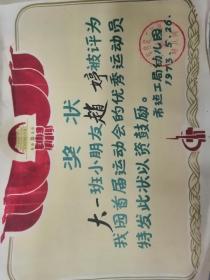 奖状
大一班小朋友赵婷被评为
我园首届运动会的优秀运动员
特发此状以资鼓励。
市造工局幼儿园
1993.5.26.